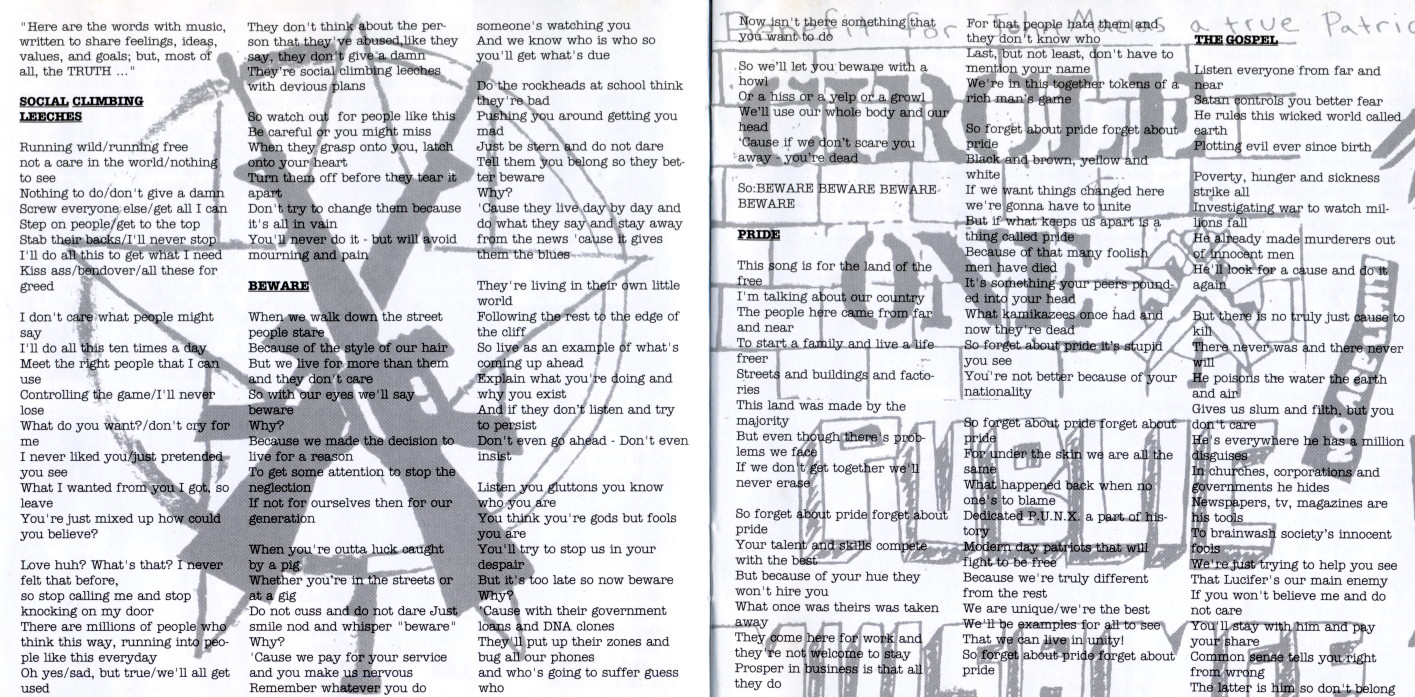 "Here are the words with music,
written to share feelings, ideas,
values, and goals; but, most of
all, the TRUTH ..."
SOCIAL CLIMBING
LEECHES
Running wild/running free
not a care in the world/nothing
to see
Nothing to do/don't give a damn
Screw everyone else/get all I can
Step on people/get to the top
Stab their backs/I'll never stop
I'll do all this to get what I need
Kiss ass/bendover/all these for
greed
I don't care what people might
say
I'll do all this ten times a day
Meet the right people that I can
use
Controlling the game/I'll never
lose
What do you want?/don't cry for
me
I never liked you/just pretended
you see
What I wanted from you I got, so
leave
You're just mixed up how could
you believe?
Love huh? What's that? I never
felt that before,
so stop calling me and stop
knocking on my door
There are millions of people who
think this way, running into peo-
ple like this everyday
Oh yes/sad, but true/we'll all get
used
They don't think about the per-
son that they've abused,like they
say, they don't give a damn
They're social climbing leeches
with devious plans
So watch out  for people like this
Be careful or you might miss
When they grasp onto you, latch
onto your heart
Turn them off before they tear it
apart
Don't try to change them because
it's all in vain
You'll never do it - but will avoid
mourning and pain
BEWARE
When we walk down the street
people stare
Because of the style of our hair
But we live for more than them
and they don't care
So with our eyes we'll say
beware
Why?
Because we made the decision to
live for a reason
To get some attention to stop the
neglection
If not for ourselves then for our
generation
When you're outta luck caught
by a pig
Whether you're in the streets or
at a gig
Do not cuss and do not dare Just
smile nod and whisper "beware"
Why?
'Cause we pay for your service
and you make us nervous
Remember whatever you do
someone's watching you
And we know who is who so
you'll get what's due
Do the rockheads at school think
they're bad
Pushing you around getting you
mad
Just be stern and do not dare
Tell them you belong so they bet-
ter beware
Why?
'Cause they live day by day and
do what they say and stay away
from the news 'cause it gives
them the blues
They're living in their own little
world
Following the rest to the edge of
the cliff
So live as an example of what's
coming up ahead
Explain what you're doing and
why you exist
And if they don't listen and try
to persist
Don't even go ahead - Don't even
insist
Listen you gluttons you know
who you are
You think you're gods but fools
you are
You'll try to stop us in your
despair
But it's too late so now beware
Why?
'Cause with their government
loans and DNA clones
They'll put up their zones and
bug all our phones
and who's going to suffer guess
who
Now isn't there something that
you want to do
So we'll let you beware with a
howl
Or a hiss or a yelp or a growl
We'll use our whole body and our
head
'Cause if we don't scare you
away - you're dead
So:BEWARE BEWARE BEWARE
BEWARE
PRIDE
This song is for the land of the
free
I'm talking about our country
The people here came from far
and near
To start a family and live a life
freer
Streets and buildings and facto-
ries
This land was made by the
majority
But even though there's prob-
lems we face
If we don't get together we'll
never erase
So forget about pride forget about
pride
Your talent and skills compete
with the best
But because of your hue they
won't hire you
What once was theirs was taken
away
They come here for work and
they're not welcome to stay
Prosper in business is that all
they do
For that people hate them and
they don't know who
Last, but not least, don't have to
mention your name
We're in this together tokens of a
rich man's game
So forget about pride forget about
pride
Black and brown, yellow and
white
If we want things changed here
we're gonna have to unite
But if what keeps us apart is a
thing called pride
Because of that many foolish
men have died
It's something your peers pound-
ed into your head
What kamikazees once had and
now they're dead
So forget about pride it's stupid
you see
You're not better because of your
nationality
So forget about pride forget about
pride
For under the skin we are all the
same
What happened back when no
one's to blame
Dedicated P.U.N.X. a part of his-
tory
Modern day patriots that will
fight to be free
Because we're truly different
from the rest
We are unique/we're the best
We'll be examples for all to see
That we can live in unity!
So forget about pride forget about
pride
a true Patric
THE GOSPEL
Listen everyone from far and
near
Satan controls you better fear
He rules this wicked world called
earth
Plotting evil ever since birth
Poverty, hunger and sickness
strike all
Investigating war to watch mil-
lions fall
He already made murderers out
of innocent men
He'll look for a cause and do it
again
But there is no truly just cause to
kill
There never was and there never
will
He poisons the water the earth
and air
Gives us slum and filth, but you
don't care
He's everywhere he has a million
disguises
In churches, corporations and
governments he hides
Newspapers, tv, magazines are
his tools
To brainwash society's innocent
fools
We're just trying to help you see
That Lucifer's our main enemy
If you won't believe me and do
not care
You'll stay with him and pay
your share
Common sense tells you right
from wrong
The latter is him so don't belong
CIRCLE
ONE